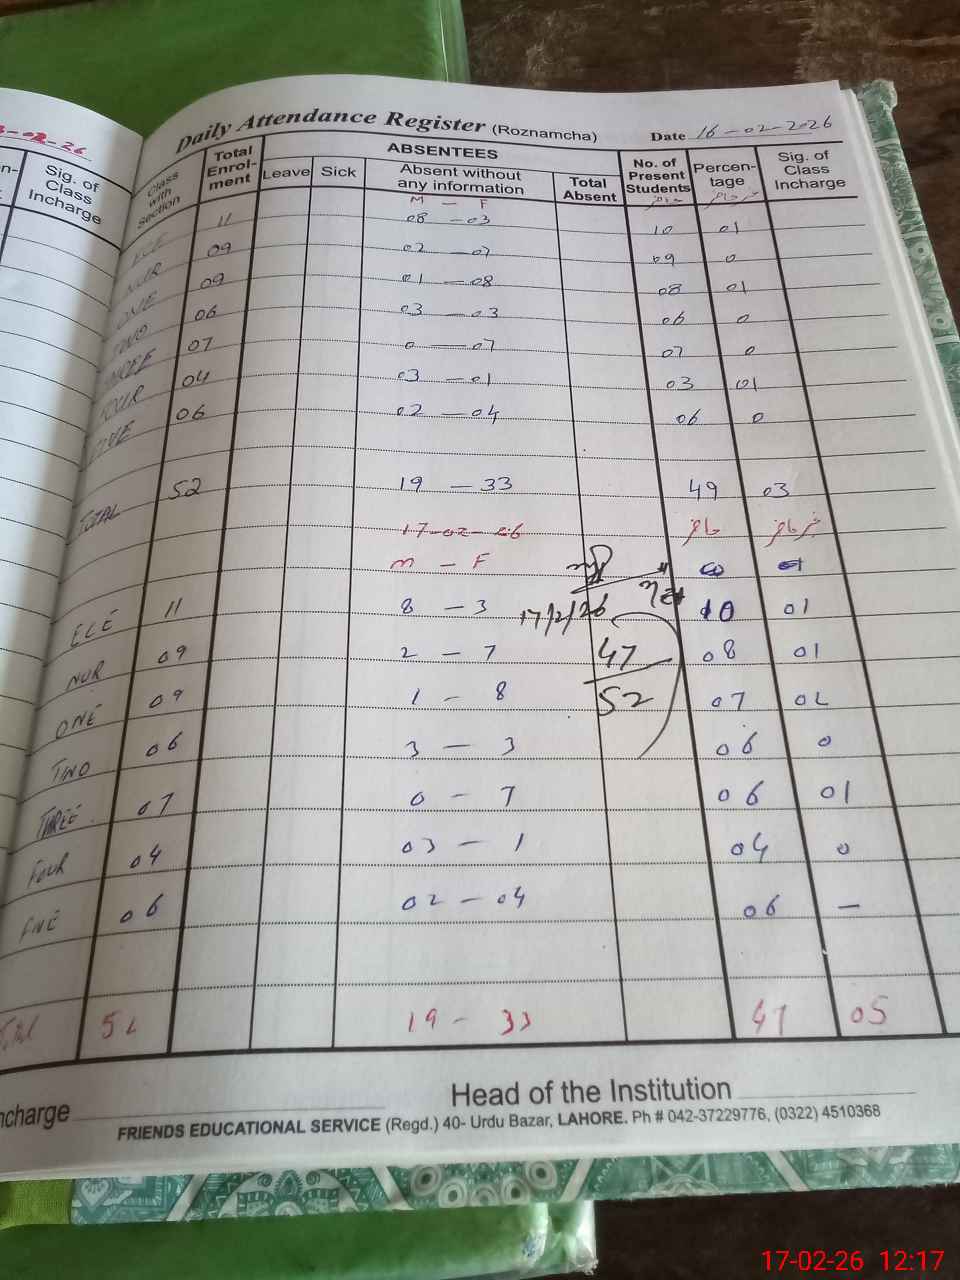 3-02-26
Sig. of
Class
Incharge
Daily Attendance Register (Roznamcha) Date 16-02-2026
Class with Section Total Enrol-ment ABSENTEES No. of Present Students Percen-tage Sig. of Class Incharge
Leave Sick Absent without any information Total Absent
M - F حاضر غیر حاضر
ECE 11 08 - 03 10 01
NUR 09 02 - 07 09 0
ONE 09 01 - 08 08 01
TWO 06 03 - 03 06 0
THREE 07 0 - 07 07 0
FOUR 04 03 - 01 03 01
FIVE 06 02 - 04 06 0
TOTAL 52 19 - 33 49 03
17-02-26 حاضر غیر حاضر
M - F
ECE 11 8 - 3 17/2/26 10 01
NUR 09 2 - 7 47 08 01
ONE 09 1 - 8 52 07 02
TWO 06 3 - 3 06 0
THREE 07 0 - 7 06 01
FOUR 04 03 - 1 04 0
FIVE 06 02 - 04 06 -
Total 52 19 - 33 47 05
ncharge Head of the Institution
FRIENDS EDUCATIONAL SERVICE (Regd.) 40- Urdu Bazar, LAHORE. Ph # 042-37229776, (0322) 4510368
17-02-26 12:17